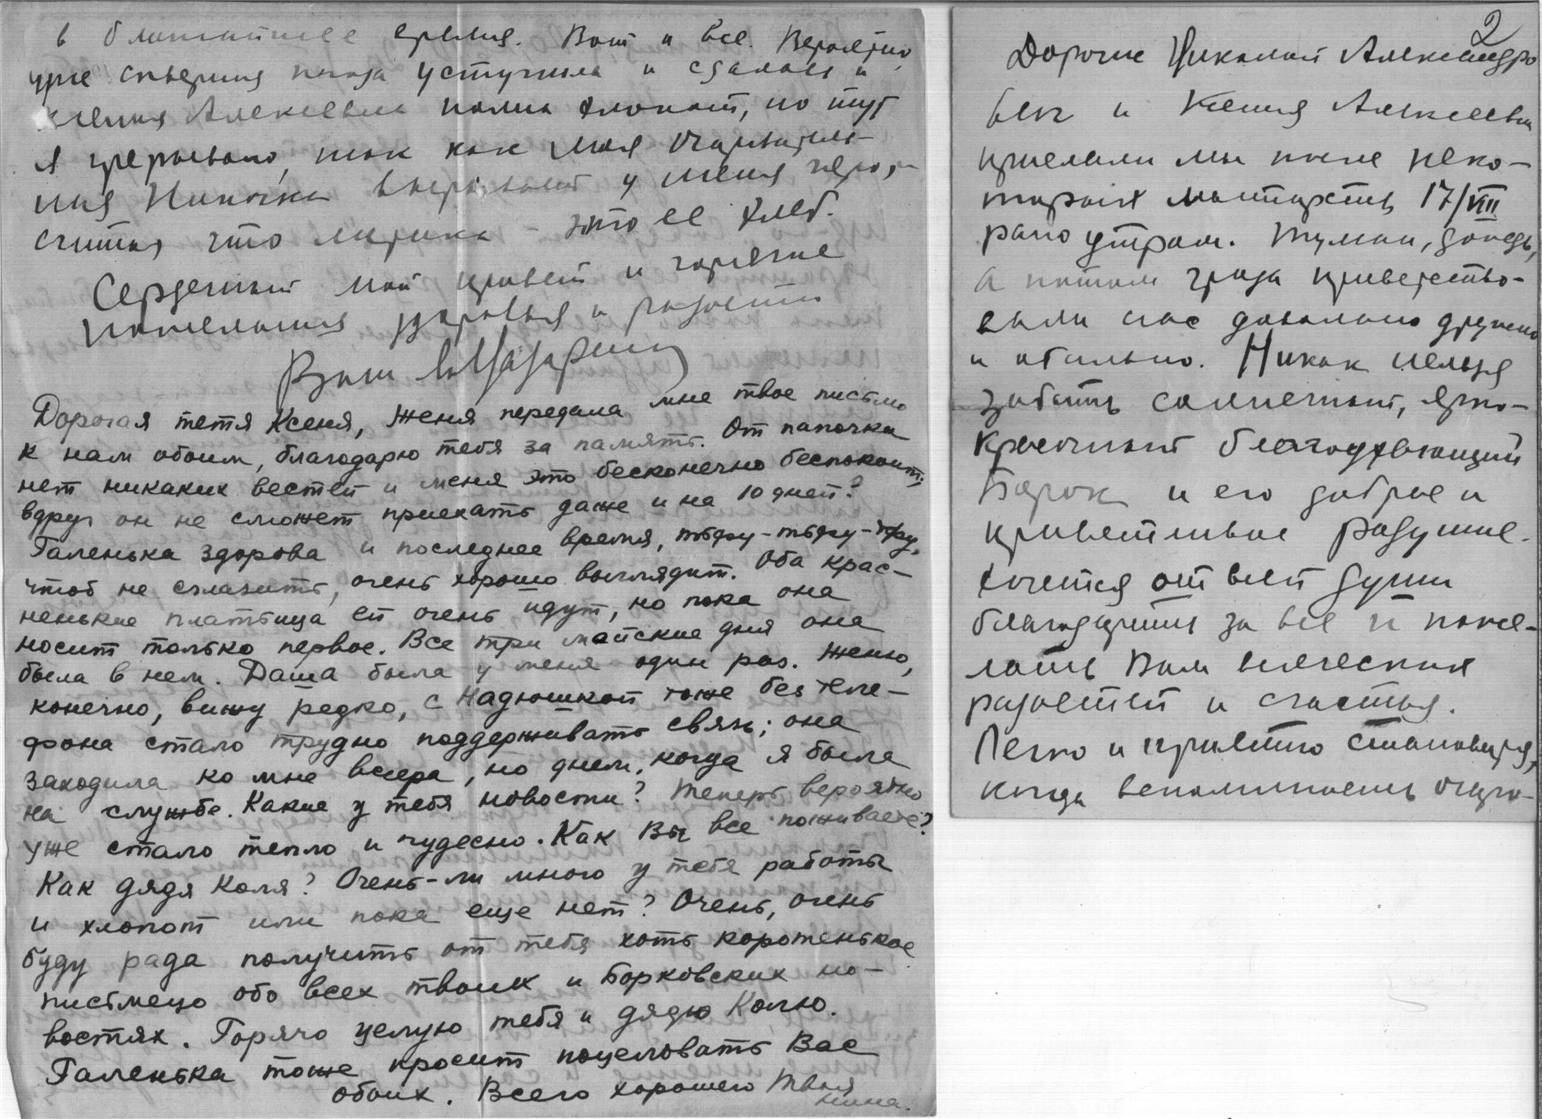 в ближайшее время. Вот и все. Вероятно
уже снежная погода уступила и сдалась и
Ксения Алексеевна полна хлопот, но тут
я прерываю, так как моя очарователь-
ная Ниночка вырывает у меня перо,
считая, что лирика - это ее хлеб.
Сердечный мой привет и горячие
пожелания здоровья и радости
Ваш
Дорогая тетя Ксеня, Женя передала мне твое письмо
к нам обоим, благодарю тебя за память. От папочки
нет никаких вестей и меня это бесконечно беспокоит,
вдруг он не сможет приехать даже и на 10 дней?
Галенька здорова и последнее время, тьфу-тьфу-тьфу,
чтоб не сглазить, очень хорошо выглядит. Оба крас-
ненькие платьица ей очень идут, но пока она
носит только первое. Все три майские дня она
была в нем. Даша была у меня один раз. Женю,
конечно, вижу редко, с Надюшкой тоже без теле-
фона стало трудно поддерживать связь; она
заходила ко мне вчера, но днем, когда я была
на службе. Какие у тебя новости? Теперь вероятно
уже стало тепло и чудесно. Как Вы все поживаете?
Как дядя Коля? Очень-ли много у тебя работы
и хлопот или пока еще нет? Очень, очень
буду рада получить от тебя хоть коротенькое
письмецо обо всех твоих и Борковских но-
востях. Горячо целую тебя и дядю Колю.
Галенька тоже просит поцеловать Вас
обоих. Всего хорошего Твоя
Нина.
2
Дорогие Николай Александро
вич и Ксения Алексеевна
приехали мы после неко-
торых мытарств 17/VIII
рано утром. Туман, дождь,
а потом гроза приветство-
вали нас довольно дружно
и обильно. Никак нельзя
забыть солнечный, ярко-
красочный благоухающий
Борок и его доброе и
приветливое радушие.
Хочется от всей души
благодарить за все и поже-
лать Вам всяческих
радостей и счастья.
Легко и приятно становится,
когда вспоминаешь очаро-